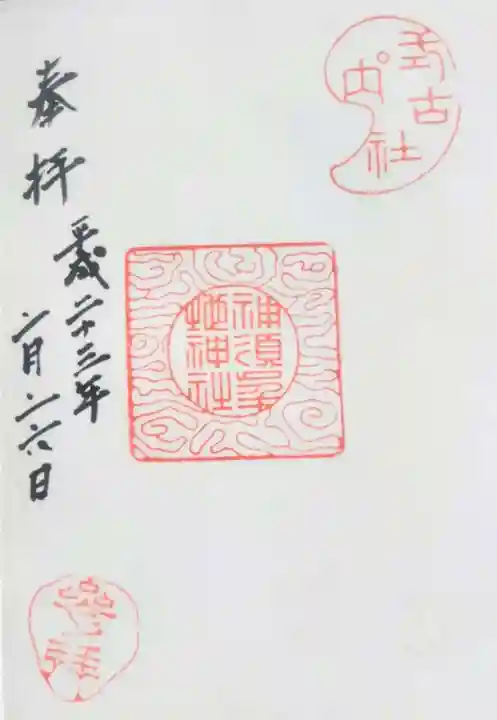 式内古社
神須牟地神社
奉拝
平成二十三年
二月二六日